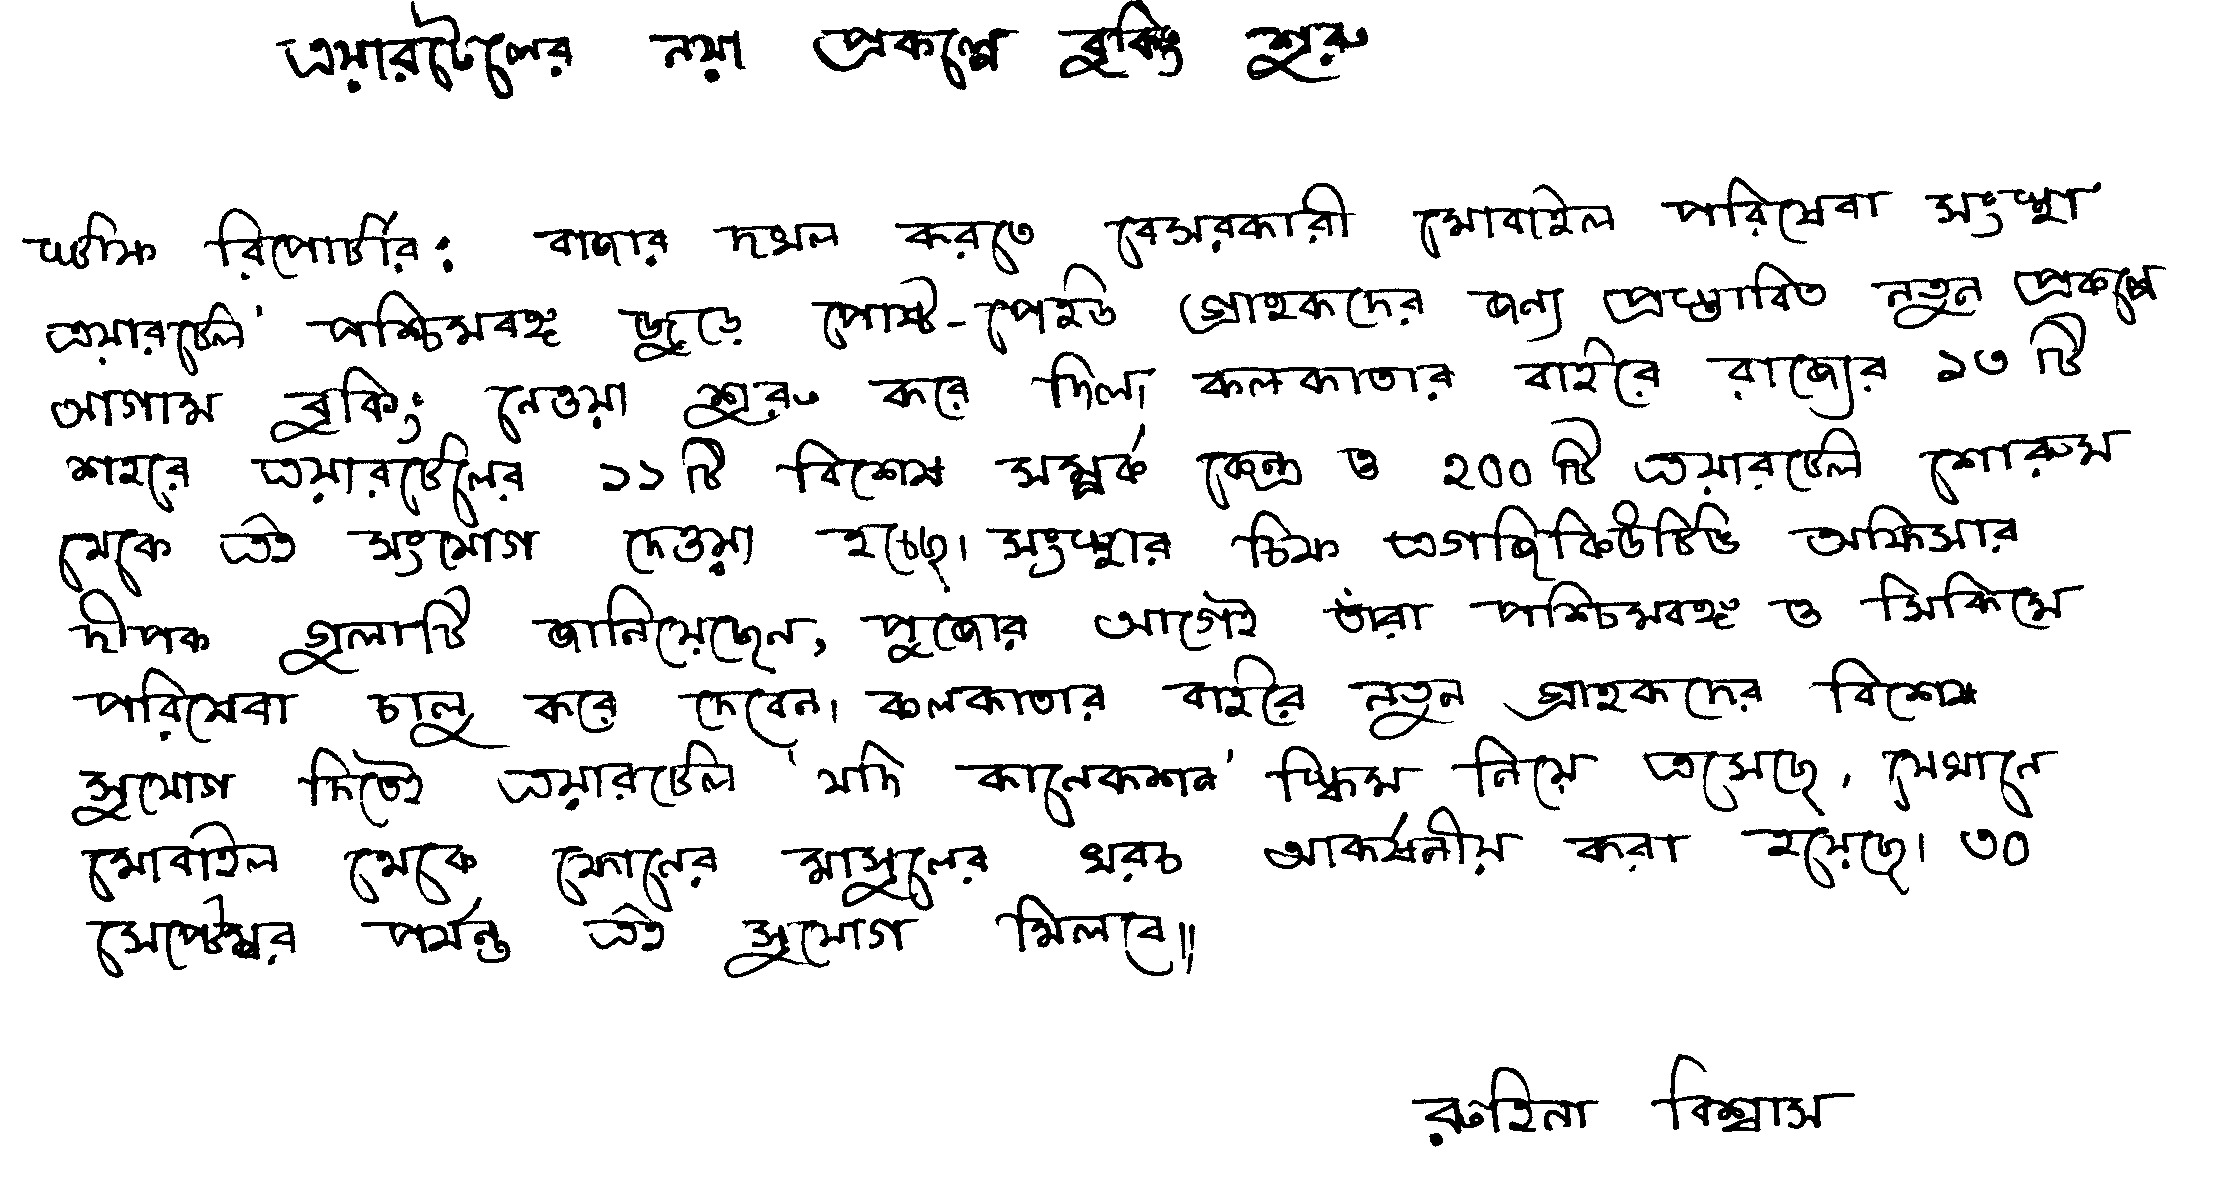 এয়ারটেলের নয়া প্রকল্পে বুকিং শুরু
ষ্টাফ রিপোর্টার: বাজার দখল করতে বেসরকারী মোবাইল পরিষেবা সংস্থা
এয়ারটেল পশ্চিমবঙ্গ জুড়ে পোষ্ট-পেইড গ্রাহকদের জন্য প্রস্তাবিত নতুন প্রকল্পে
আগাম বুকিং নেওয়া শুরু করে দিল। কলকাতার বাইরে রাজ্যের ১৩টি
শহরে এয়ারটেলের ১১টি বিশেষ সম্পর্ক কেন্দ্র ও ২০০টি এয়ারটেল শোরুম
থেকে এই সংযোগ দেওয়া হচ্ছে। সংস্থার চিফ এগজিকিউটিভ অফিসার
দীপক গুলাটি জানিয়েছেন, পুজোর আগেই তাঁরা পশ্চিমবঙ্গ ও সিকিমে
পরিষেবা চালু করে দেবেন। কলকাতার বাইরে নতুন গ্রাহকদের বিশেষ
সুযোগ দিতেই এয়ারটেল 'যদি কানেকশন' স্কিম নিয়ে এসেছে, যেখানে
মোবাইল থেকে ফোনের মাসুলের খরচ আকর্ষনীয় করা হয়েছে। ৩০
সেপ্টেম্বর পর্যন্ত এই সুযোগ মিলবে॥
রুহিনা বিশ্বাস